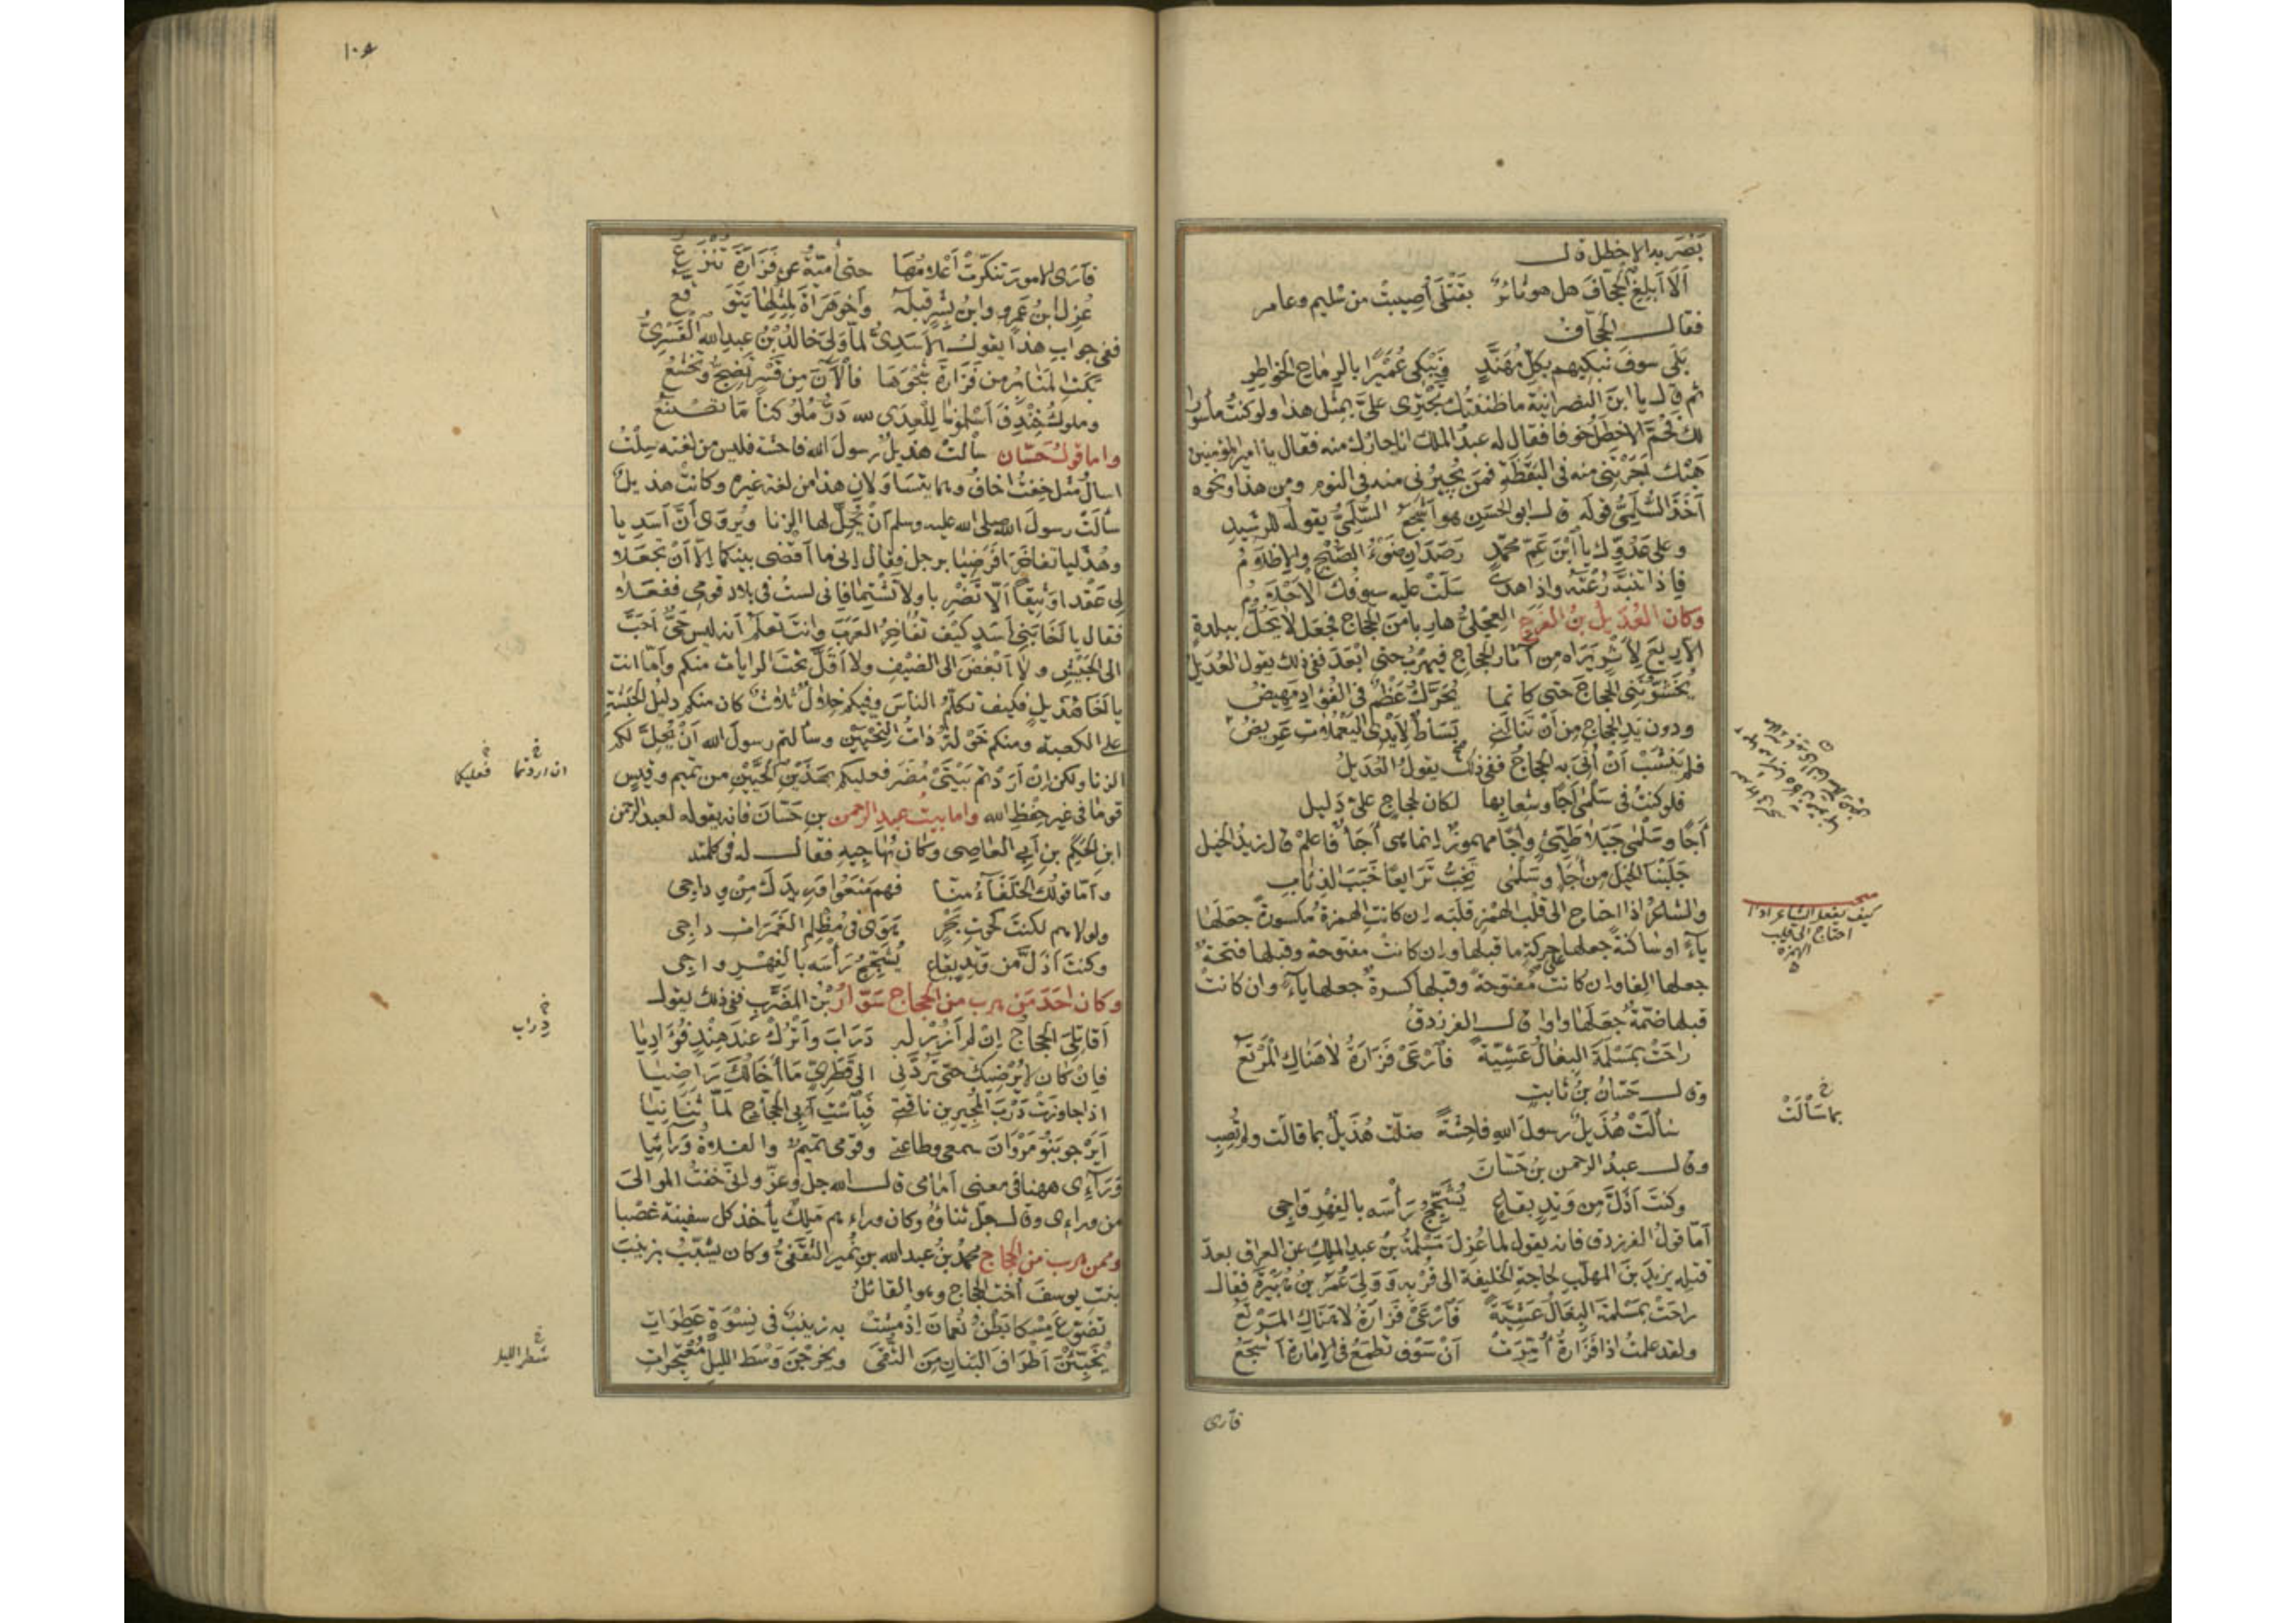 بَصُرَ به الاخطل قال
اَلَا اَبلِغِ الجحّافَ هل هو ثائرٌ بقَتْلَى أُصِيبتْ من سُليم وعامر
فقال الجحّافُ
بَلَى سوفَ نبكيهم بكلّ مُهَنَّدٍ ونَبْكِى عُمَيْرًا بالرماح الخواطرِ
ثم قال يا ابنَ النصرانيّة ما ظننتُك تجترى علىَّ بمثل هذا ولو كنتُ مأسورا
لك فَحُمَّ الاخطل خوفا فقال له عبدُ الملك انا جارك منه فقال يا امير المؤمنين
هَبْك اَجَرْتَنى منه فى اليَقَظَةِ فمَن يُجيرُنى منه فى النوم ومن هذا ونحوه
اَخَذَ السُّلَمِىُّ قولَه قال ابو الحسن هو اَشْجَعُ السُّلَمِىُّ يقوله للرشيدِ
وعلى عَدُوّك يا اْبنَ عَمِّ محمّدٍ رَصَدانِ ضَوْءُ الصُّبْحِ والاِظلامُ
فإذا تنبّهَ رُعْتَه واذا هدا سَلّتْ عليه سيوفَك الاَحْلامُ
وكان العُدَيلُ بنُ الفَرْخِ العِجْلىُّ هاربا منَ الحجاج فجعل لا يَحُلُّ ببلدةٍ
الّا رِيعَ لأثرٍ يَراه من آثار الحجاج فيهرُبُ حتى اَبْعَدَ ففى ذلك يقول العُدَيلُ
يُخَشّوْنَنى الحجاجَ حتى كانما يُحَرَّكُ عَظْمٌ فى الفؤادِ مَهِيضُ
ودون يدِ الحجاج مِن اَنْ تنالَنى بَسَاطٌ لأيْدِى اليَعْمَلاتِ عَرِيضُ
فلم يَنْشَبْ اَنْ اُتِىَ به الحجاجُ ففى ذلك يقولُ العُدَيلُ
فلو كنتُ فى سَلْمَى اَجًا وشِعابِها لكان لحجاجٍ علىَّ دَليل
أَجًا وسَلْمَى جَبَلا طَيِّئ وأجًا مهموزٌ انما هى أَجَأٌ فاعلمْ قال زيدُ الخيل
جَلَبْنا الخيلَ من أَجَإٍ وسَلْمَى تَخُبُّ نَزائعًا خَبَبَ الذِئابِ
والشاعرُ اذا احتاج الى قلب الهمز قلَبَه إن كانتِ الهمزةُ مكسورةً جعلَها
ياءً او ساكنةً جعلها على حركةِ ما قبلها وإن كانتْ مفتوحةً وقبلها فتحةٌ
جعلها الِفا وإن كانت مفتوحةً وقبلها كسرةٌ جعلها ياءً وان كانت
قبلها ضمّةٌ جعَلَها واوا قال الفرزدقُ
راحَتْ بمَسْلَمَةَ البِغالُ عَشِيّةً فَارْعَىْ فَزارَةُ لا هَناكِ المَرْتَعُ
وقال حَسّانُ بنُ ثابتٍ
سالَتْ هُذَيلٌ رسولَ اللهِ فاحشةً ضلّت هُذَيلٌ بما قالت ولم تُصِبِ
وقال عبدُ الرحمن بنُ حَسّانَ
وكنتَ اَذَلَّ من وَتِدٍ بقاعٍ يُشَجِّجُ رَأسَه بالفِهْرِ واجِى
اَمّا قولُ الفرزدق فانه يقول لما عُزِلَ مَسْلَمَةُ بنُ عبدِ الملكِ عن العراق بعد
قتله يزيدَ بنَ المهلّب لحاجةِ الخليفة الى قُرْبِهِ وَوَلِىَ عُمَرُ بنُ هُبَيْرَةَ فقال
راحَتْ بمَسْلَمَةَ البِغالُ عَشِيّةً فَارْعَىْ فَزارَةُ لا هَناكِ المَرْتَعُ
ولقد علمتُ اذا فَزارَةُ اُمِّرَتْ اَنْ سَوْفَ تَطْمَعُ فى الاِمارَةِ اَشْجَعُ
فآرى
كيف يفعل الشاعر اذا
احتاج الى قلب
الهمزة
خ
بما سَأَلَتْ
١٠٤
فآرَى الامورَ تنكّرتْ اَعْلامُها حتى اُميّةُ عن فَزارَةَ تَنْزِعُ
عُزِلَ ابنُ عَمْرٍو وابنُ بِشْرٍ قبلَه واَخو هَراةَ لِمِثْلِها يَتَوَقّعُ
ففى جوابِ هذا يقول الاَسَدِىُّ لمّا وَلِىَ خالدُ بْنُ عبدِ الله القَسْرِىُّ
بَكَتِ المَنابِرُ من فَزارَةَ شَجْوَها فالآنَ من قَسْرٍ تَضِجُّ وتَخْشَعُ
وملوكُ خِنْدِفَ اَسْلَمونا لِلْعِدَى لله دَرُّ مُلوكنا مَا تَصْنَعُ
واما قولُ حَسّان سالَتْ هُذيلٌ رسولَ الله فاحشة فليس من لغته سِلْتُ
اسالُ مثل خِفْتُ اخافُ وهما يتساوَلانِ هذا من لغة غيره وكانت هذيلٌ
سأَلَتْ رسولَ الله صلى الله عليه وسلم اَنْ يُحِلَّ لها الزنا ويُروَى أنّ اَسَدِيا
وهُذَليا تفاخَرا فَرَضِيا برجل فقال إنى ما اَقضى بينكما إلّا اَنْ تجعَلا
لى عَقْدا وَثيقا اَلّا تَضْرِبا ولا تَشْتِما فانى لستُ فى بلاد قومى ففعَلا
فقال يا اَخا بَنِى اَسَدٍ كيف تفاخِرُ العرَبَ وانت تعلَمُ أنه ليس حَىٌّ اَحَبَّ
الى الجَيْشِ ولا اَبْغَضَ الى الضَيْفِ ولا اَقَلَّ تحت الرايات منكم واَمّا انت
يا اَخا هُذيلٍ فكيف تكلّمُ الناسَ وفيكم خِلالٌ ثلاثٌ كان منكم دليلُ الحَبَشةِ
على الكعبة ومنكم خَوْلةُ ذاتُ النِحْيَيْنِ وسألتم رسولَ الله اَنْ يُحِلَّ لكم
الزنا ولكن إنْ اَرَدْتم بَيْتَىْ مُضَرَ فعليكم بهَذَيْنِ الحَيَّيْنِ من تميم وقيسٍ
قوما فى غير حِفْظِ الله واما بيتُ عبدِ الرحمن بنِ حَسّانَ فانه يقوله لعبد الرحمن
ابن الحَكَمِ بن اَبِى العاصِى وكان يُهاجيهِ فقال له فى كلمته
واَمّا قولُك الخلَفَاءُ منّا فهم مَنَعُوا وَرِيدَك مِنْ وِداجِى
ولولاهم لكنتَ كحُوتِ بَحْرٍ هَوَى فى مُظْلِمِ الغَمَراتِ داجِى
وكنتَ اَذَلَّ من وَتِدٍ بقاعٍ يُشَجِّجُ رَأسَه بالفِهْرِ واجِى
وكان احَدَ مَن هرب من الحجاج سَوّارُ بْنُ المُضَرَّبِ ففى ذلك يقول
اَقاتِلِىَ الحجاجُ إنْ لم اَزُرْ له دَرَابَ واَتْرُكْ عندَ هِنْدٍ فُؤَادِيا
فإنْ كان لا يُرْضيك حتى تَرُدّنى الى قَطَرِىٍّ مَا اِخَالُك رَاضِيا
اذا جاوزَتْ دَرْبَ المُجِيرِينَ ناقتى فَبِاسْتِ اَبِى الحجاج لَمّا ثَنَانِيا
اَيَرْجو بَنُو مَرْوَانَ سمعى وطاعتى وقومى تميمٌ والفلاةُ وَرَائِيا
وَرَآءِى ههنا فى معنى اَمامى قال الله جل وعزّ وانّى خفتُ الموالىَ
من وراءى وقال جلّ ثناؤه وكان وراءهم مَلِكٌ يأخذ كل سفينة غصبا
وممن هرب من الحجاج محمدُ بنُ عبد الله بن نُمَيرٍ الثَقَفىُّ وكان يُشَبّبُ بزينبَ
بنت يوسفَ اُخت الحجاج وهو القائلُ
تضوّعَ مِسْكا بَطْنُ نُعْمانَ اِذْ مَشَتْ به زينبٌ فى نِسْوَةٍ عَطِراتِ
يُخَبِّئْنَ اَطْرافَ البَنانِ مِنَ التُّقَى ويخرجْنَ وَسْطَ الليلِ مُعْتَجِراتِ
خ خ
ان اردتما فعليكما
خ
دِراب
خ
شطر الليل